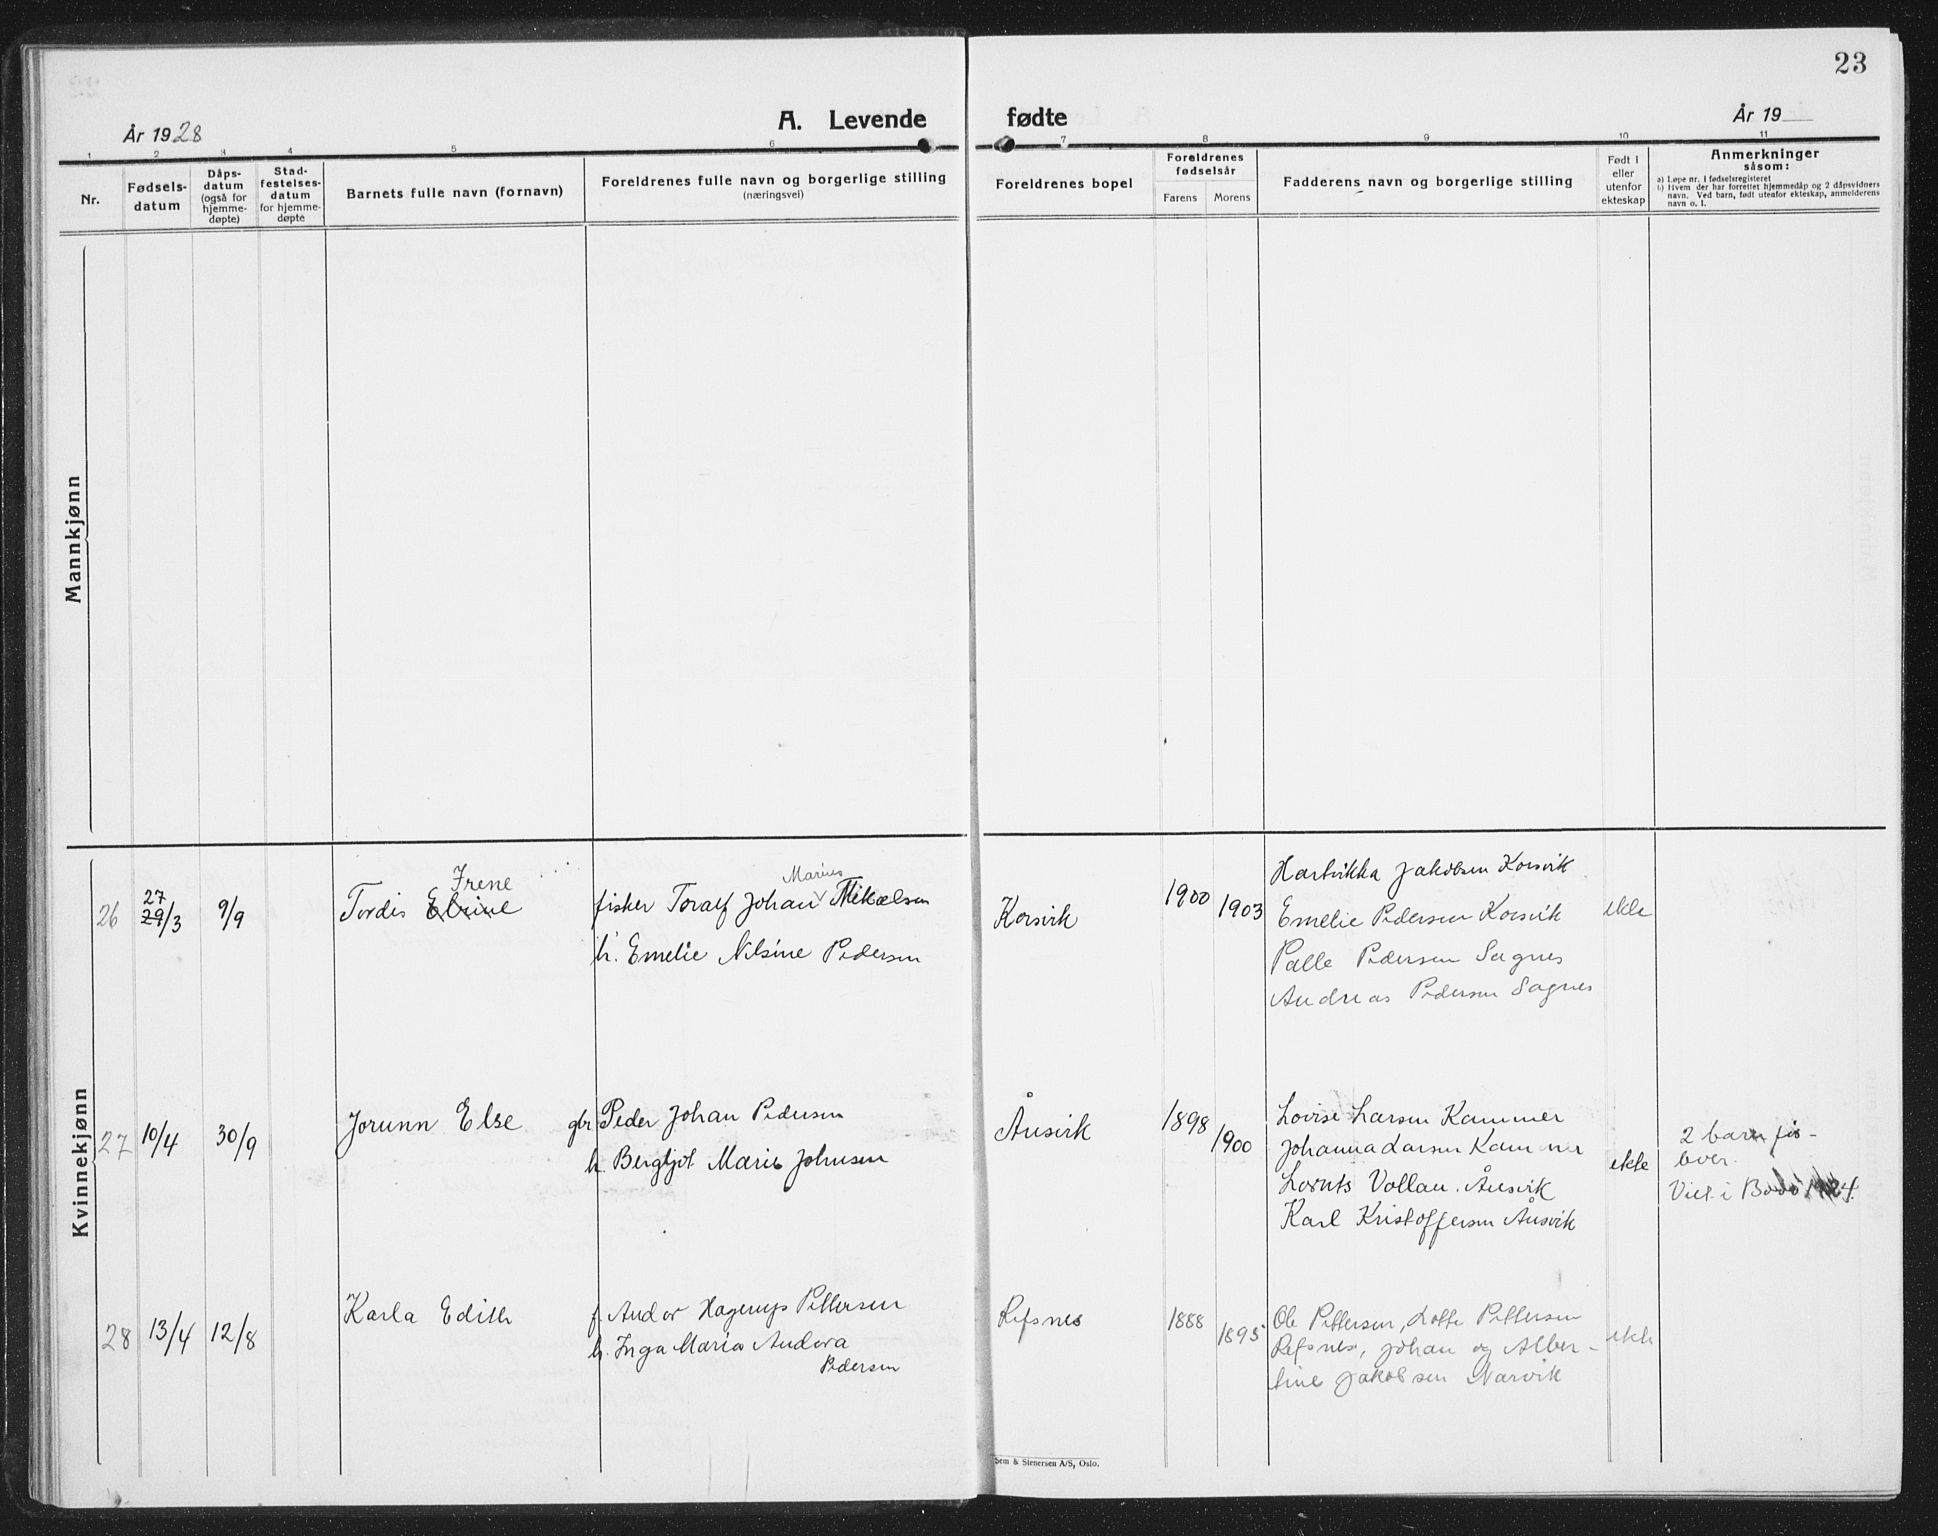 23
År 1928
A. Levende
fødte
År 19
1 2 3 4 5 6 7 8 9 10 11
Nr.
Fødsels-
datum
Dåps-
datum
(også for
hjemme-
døpte)
Stad-
festelses-
datum
for hjemme-
døpte
Barnets fulle navn (fornavn)
Foreldrenes fulle navn og borgerlige stilling
(næringsvei)
Foreldrenes bopel
Foreldrenes
fødselsår
Farens Morens
Fadderens navn og borgerlige stilling
Født i
eller
utenfor
ekteskap
Anmerkninger
såsom:
a) Løpe nr. i fødselsregisteret
b) Hvem der har forrettet hjemmedåp og 2 dåpsvidners
navn. Ved barn, født utenfor ekteskap, anmelderens
navn o. l.
Mannkjønn
Kvinnekjønn
26
27
29/3
9/9
Irene
Tordis Elrine
Marius
fisker Toralf Johan Mikælsen
h. Emelie Nilsine Pedersen
Korsvik
1900
1903
Hartvikka Jakobsen Korsvik
Emelie Pedersen Korsvik
Palle Pedersen Sagnes
Andreas Pedersen Sagnes
ekte
27
10/4
30/9
Jorunn Else
gbr Peder Johan Pedersen
h. Bergljot Marie Johnsen
Ånsvik
1898
1900
Lovise Larsen Kammer
Johanna Larsen Kammer
Lornts Vollan. Ånsvik
Karl Kristoffersen Ånsvik
ekte
2 barn
Viet i Bodø 1924.
28
13/4
12/8
Karla Edith
f. Andor Hagerup Pettersen
h. Inga Maria Andora
Pedersen
Refsnes
1888
1895
Ole Pettersen, Lotte Pettersen
Refsnes, Johan og Alber-
tine Jakobsen Narvik
ekte
Sem & Stenersen A/S, Oslo.